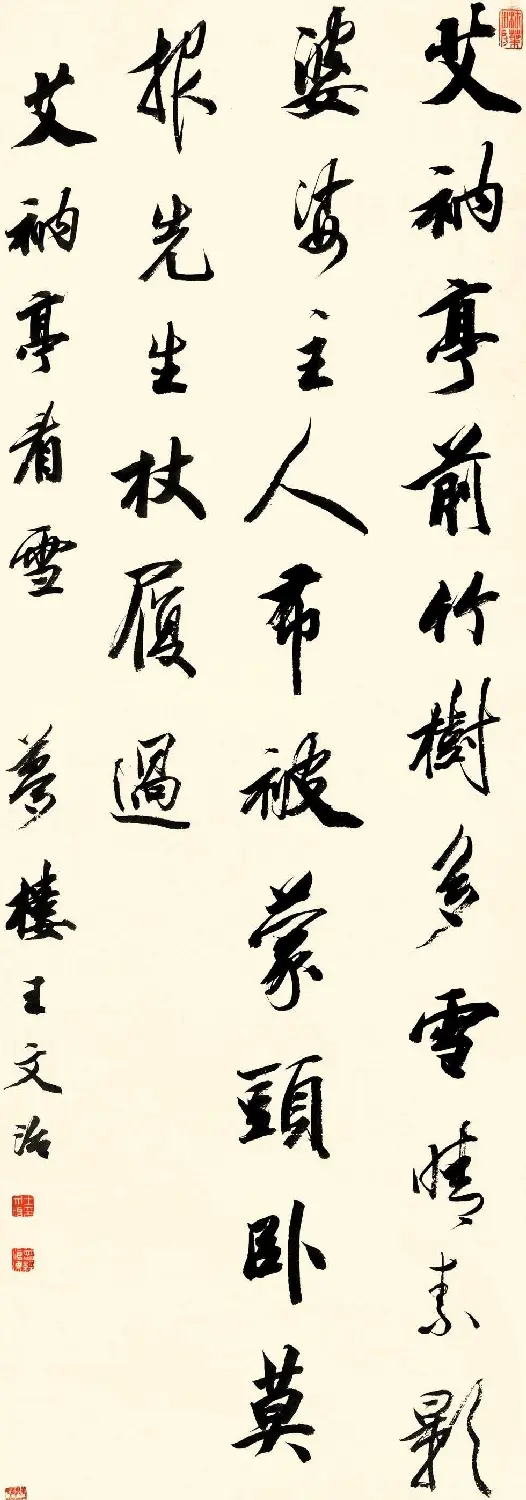 艾衲亭前竹樹多雪晴素影
婆娑主人布被蒙頭卧莫
报先生杖履過
艾衲亭看雪 夢樓王文治